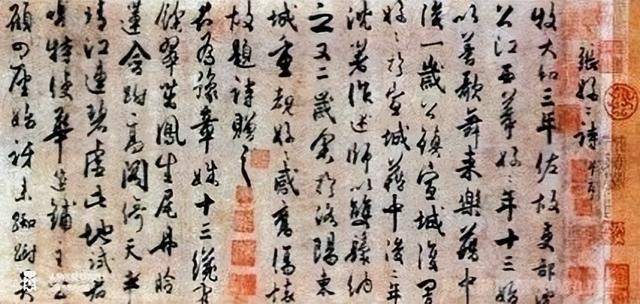 張好〻詩并序
牧大和三年佐故吏部沈
公江西幕好〻年十三始
以善歌舞來樂籍中
後一歲公鎮宣城復置
好〻於宣城籍中後二年
沈著作述師以雙鬟納
之又二歲余於洛陽東
城重覩好〻感舊傷懷
故題詩贈之
君為豫章姝十三纔有
餘翠茁鳳生尾丹臉
蓮含跗高閣倚天半
晴江連碧虛此地試君
唱特使華筵鋪主公
顧四座始訝來踟躕吳